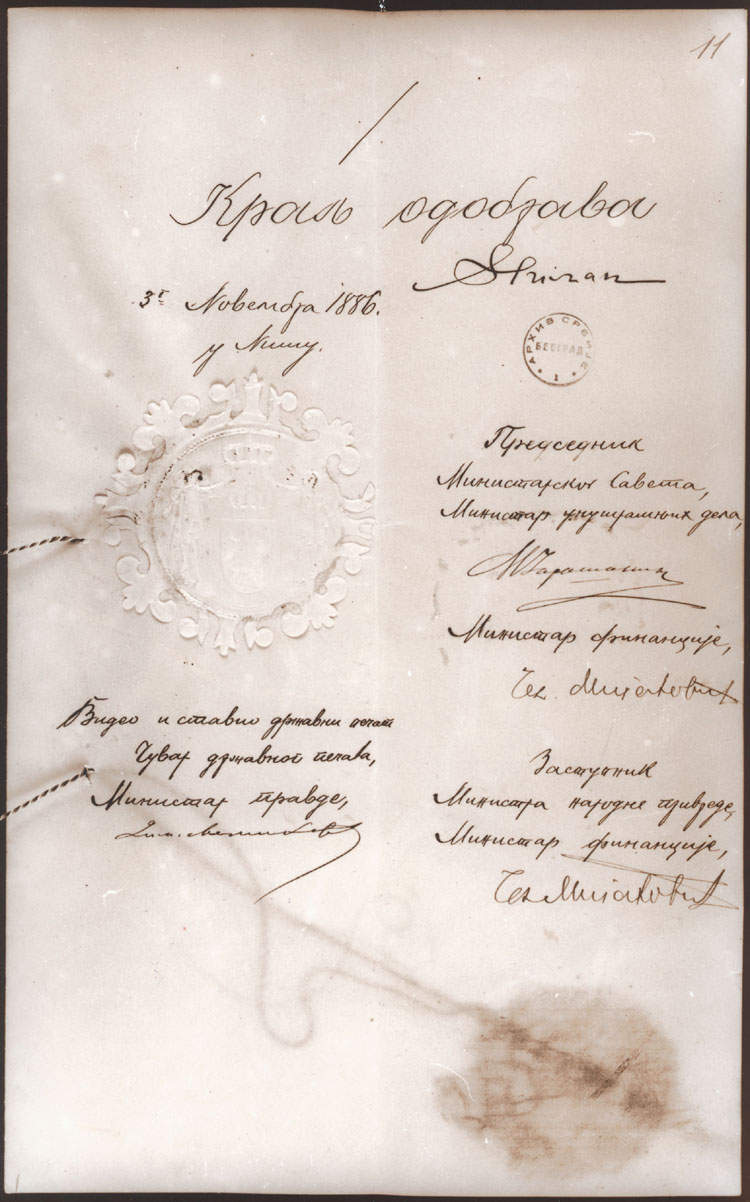 11
Краљ одобрава
3г Новембра 1886.
у Нишу.
АРХИВ СРБИЈЕ
БЕОГРАД
1
Председник
Министарског Савета,
Министар унутрашњих дела,
М Гарашанин
Министар финанције,
Чед. Мијатовић
Видео и ставио државни печат
Чувар државног печата,
Министар правде,
Заступник
Министра народне привреде,
Министар финанције,
Чед Мијатовић